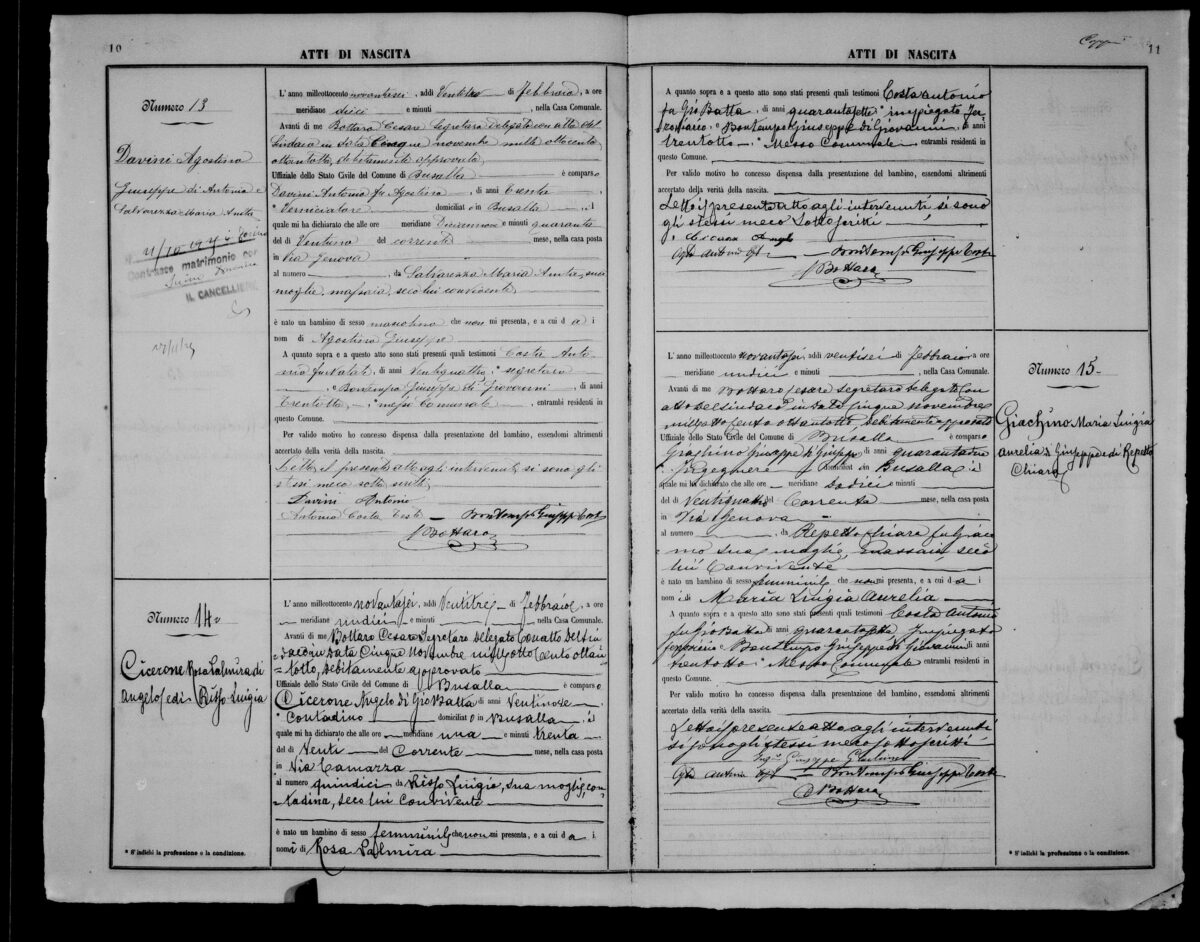 10
ATTI DI NASCITA
Numero 13
Davini Agostino
Giuseppe di Antonio e
Salvarezza Maria Anita
Contrasse matrimonio con
IL CANCELLIERE
L'anno milleottocento novantasei, addì Ventitre di Febbraio, a ore
meridiane dieci e minuti , nella Casa Comunale.
Avanti di me Bottaro Cesare Segretaro Delegato con atto del
Sindaco in data Cinque novembre mille ottocento
ottantotto, debitamente approvato
Uffiziale dello Stato Civile del Comune di Busalla è comparso
Davini Antonio fu Agostino, di anni trenta
* Verniciatore domiciliato in Busalla, il
quale mi ha dichiarato che alle ore meridiane e minuti quaranta
del dì Ventuno del corrente mese, nella casa posta
in Via Genova
al numero , da Salvarezza Maria Anita, sua
moglie, massaia, seco lui convivente,
è nato un bambino di sesso mascolino che non mi presenta, e a cui dà i
nomi di Agostino Giuseppe
A quanto sopra e a questo atto sono stati presenti quali testimoni Costa Anto-
nio fu Natale, di anni Ventiquattro, * segretario
e Bontempo Giuseppe di Giovanni, di anni
trentotto, * messo Comunale, entrambi residenti in
questo Comune.
Per valido motivo ho concesso dispensa dalla presentazione del bambino, essendomi altrimenti
accertato della verità della nascita.
Letto il presente atto agli intervenuti si sono gli
stessi meco sottoscritti
Davini Antonio
Antonio Costa Teste — Bontempo Giuseppe Teste
Bottaro
Numero 14
Cicerone Rosa Palmira di
angelo e di Risso Luigia
L'anno milleottocento novantasei, addì Ventitre di Febbraio, a ore
meridiane undici e minuti , nella Casa Comunale.
Avanti di me Bottaro Cesare Segretaro delegato con atto del Sin-
daco in data Cinque Novembre mille otto cento ottan-
totto, debitamente approvato
Uffiziale dello Stato Civile del Comune di Busalla è comparso
Cicerone Angelo di Gio Batta di anni Ventinove
* Contadino domiciliato in Busalla, il
quale mi ha dichiarato che alle ore meridiane una e minuti trenta
del dì Venti del Corrente mese, nella casa posta
in Via Camarza
al numero quindici da Risso Luigia, sua moglie, con-
tadina, seco lui Convivente
è nato un bambino di sesso femminile che non mi presenta, e a cui dà i
nomi di Rosa Palmira
* S'indichi la professione o la condizione.
11
ATTI DI NASCITA
A quanto sopra e a questo atto sono stati presenti quali testimoni Costa Antonio
fu Gio Batta, di anni quarantasette * impiegato fe-
rroviario e Bontempo Giuseppe di Giovanni, di anni
trentotto * Messo Comunale entrambi residenti in
questo Comune.
Per valido motivo ho concesso dispensa dalla presentazione del bambino, essendomi altrimenti
accertato della verità della nascita.
Letto il presente atto agli intervenuti si sono
gli stessi meco Sottoscritti
Bontempo Giuseppe Teste
Bottaro
L'anno milleottocento novantasei, addì ventisei di Febbraio a ore
meridiane undici e minuti , nella Casa Comunale.
Avanti di me Bottaro Cesare Segretaro delegato con
atto del Sindaco in data Cinque novembre
mille otto cento ottantotto, debitamente approvato
Uffiziale dello Stato Civile del Comune di Busalla è comparso
Giachino Giuseppe di Giuseppe di anni
* Ingegnere domiciliato in Busalla il
quale mi ha dichiarato che alle ore meridiane Dodici e minuti
del dì Ventiquattro del Corrente mese, nella casa posta
in Via Genova
al numero , da Repetto Chiara fu Giaco-
mo sua moglie, massaia, seco
lui Convivente
è nato un bambino di sesso femminile che non mi presenta, e a cui dà i
nomi di Maria Luigia Aurelia
A quanto sopra e a questo atto sono stati presenti quali testimoni Costa Antonio
fu Gio Batta di anni quarantasette Impiegato
ferroviario e Bontempo Giuseppe di Giovanni di anni
trentotto * Messo Comunale entrambi residenti in
questo Comune.
Per valido motivo ho concesso dispensa dalla presentazione del bambino, essendomi altrimenti
accertato della verità della nascita.
Letto il presente atto agli intervenuti
si sono gli stessi meco sottoscritti
Ing. Giuseppe Giachino
Bontempo Giuseppe Teste
Bottaro
Numero 15
Giachino Maria Luigia
aurelia di Giuseppe e di Repetto
Chiara
* S'indichi la professione o la condizione.